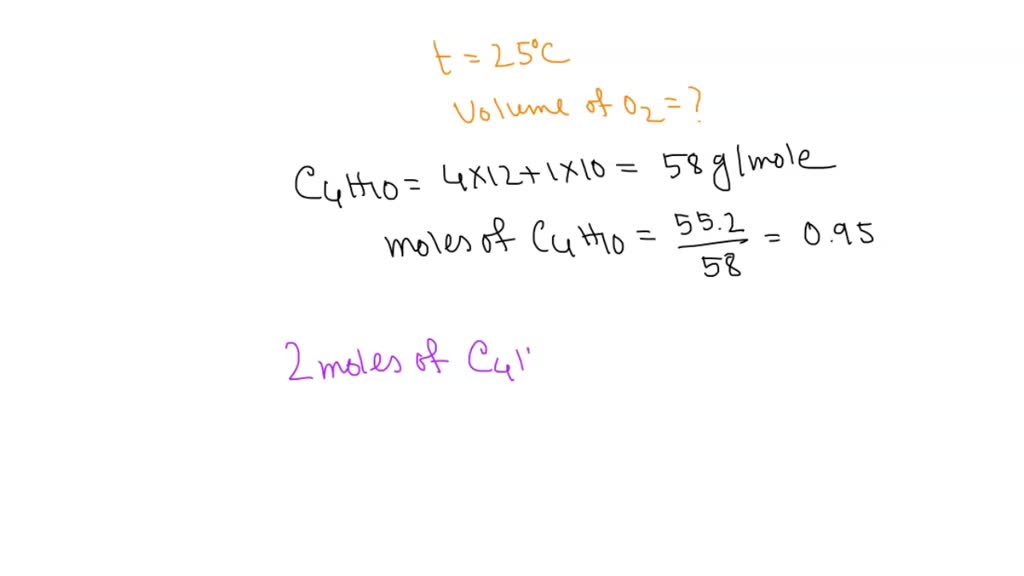 t = 25°C
Volume of O2 = ?
C4H10 = 4×12+1×10 = 58 g/mole
moles of C4H10 = 55.2/58 = 0.95
2 moles of C4